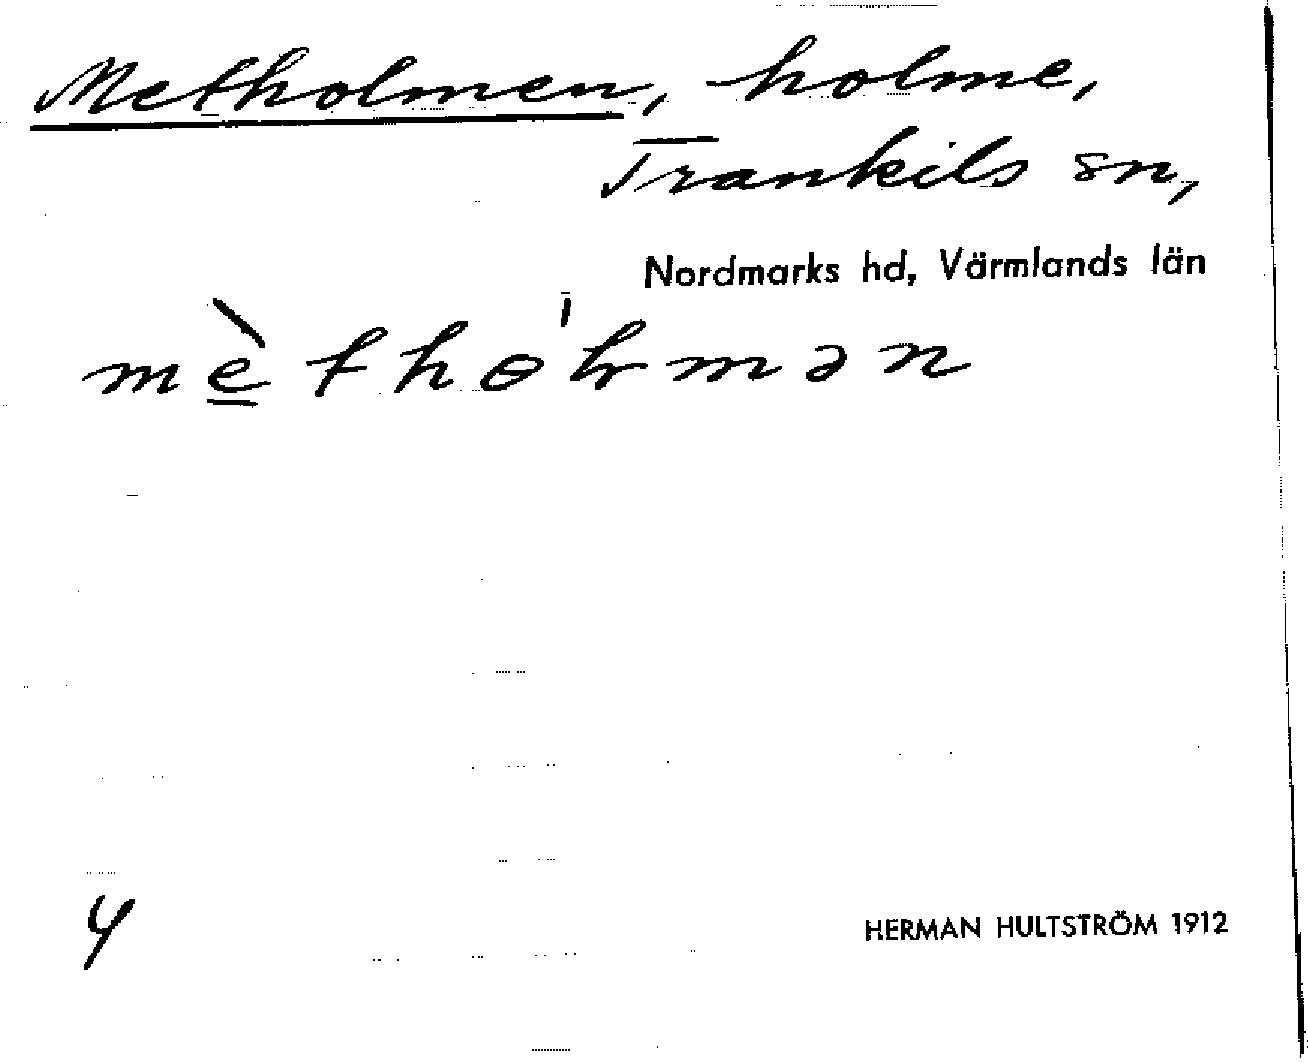 Metholmen, holme,
Trankils sn,
Nordmarks hd, Värmlands län
mèthɵ̍ɫmən
4
HERMAN HULTSTRÖM 1912